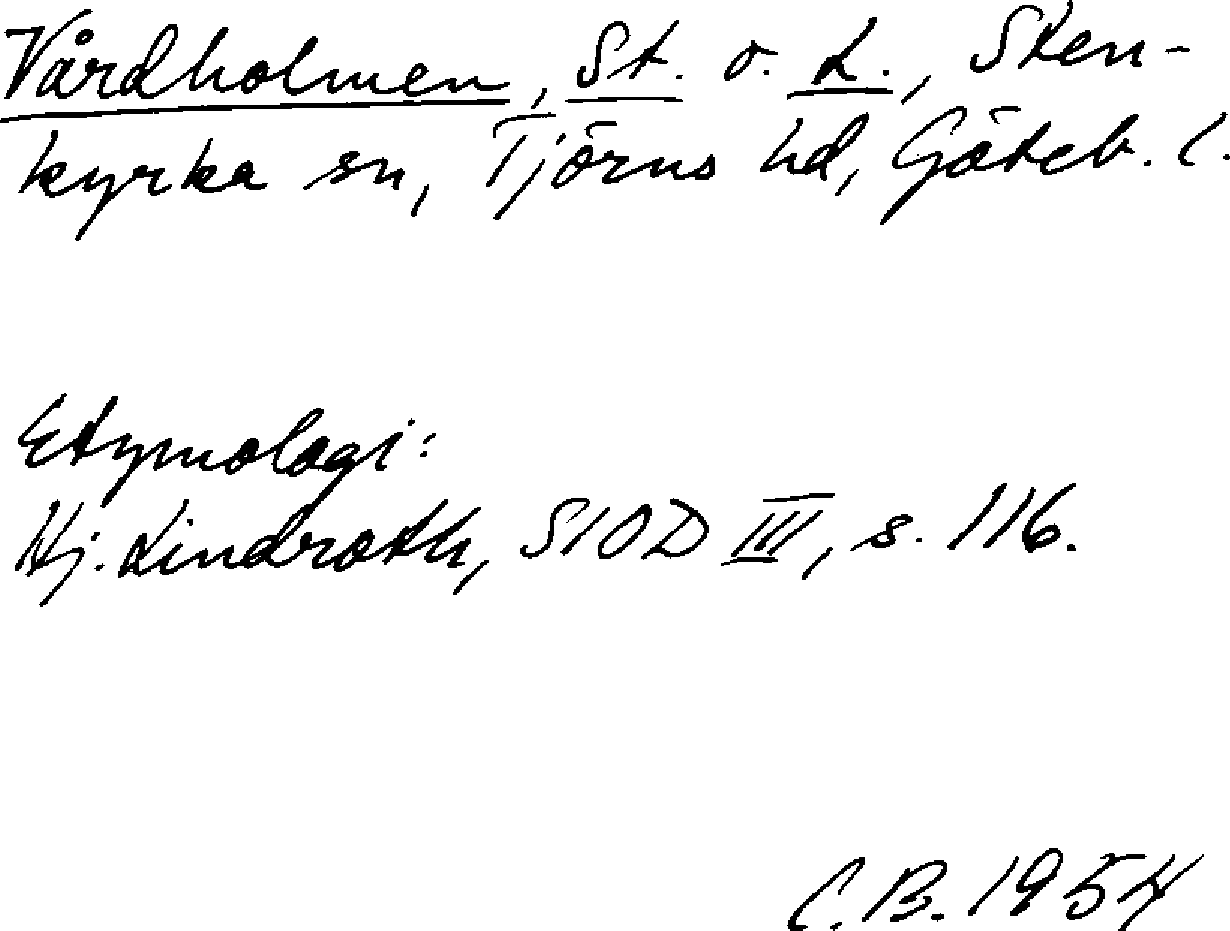 Vårdholmen, St. o. L., Sten-
kyrka sn, Tjörns hd, Göteb. l.
Etymologi:
Hj. Lindroth, SIOD III, s. 116.
C.B. 1954